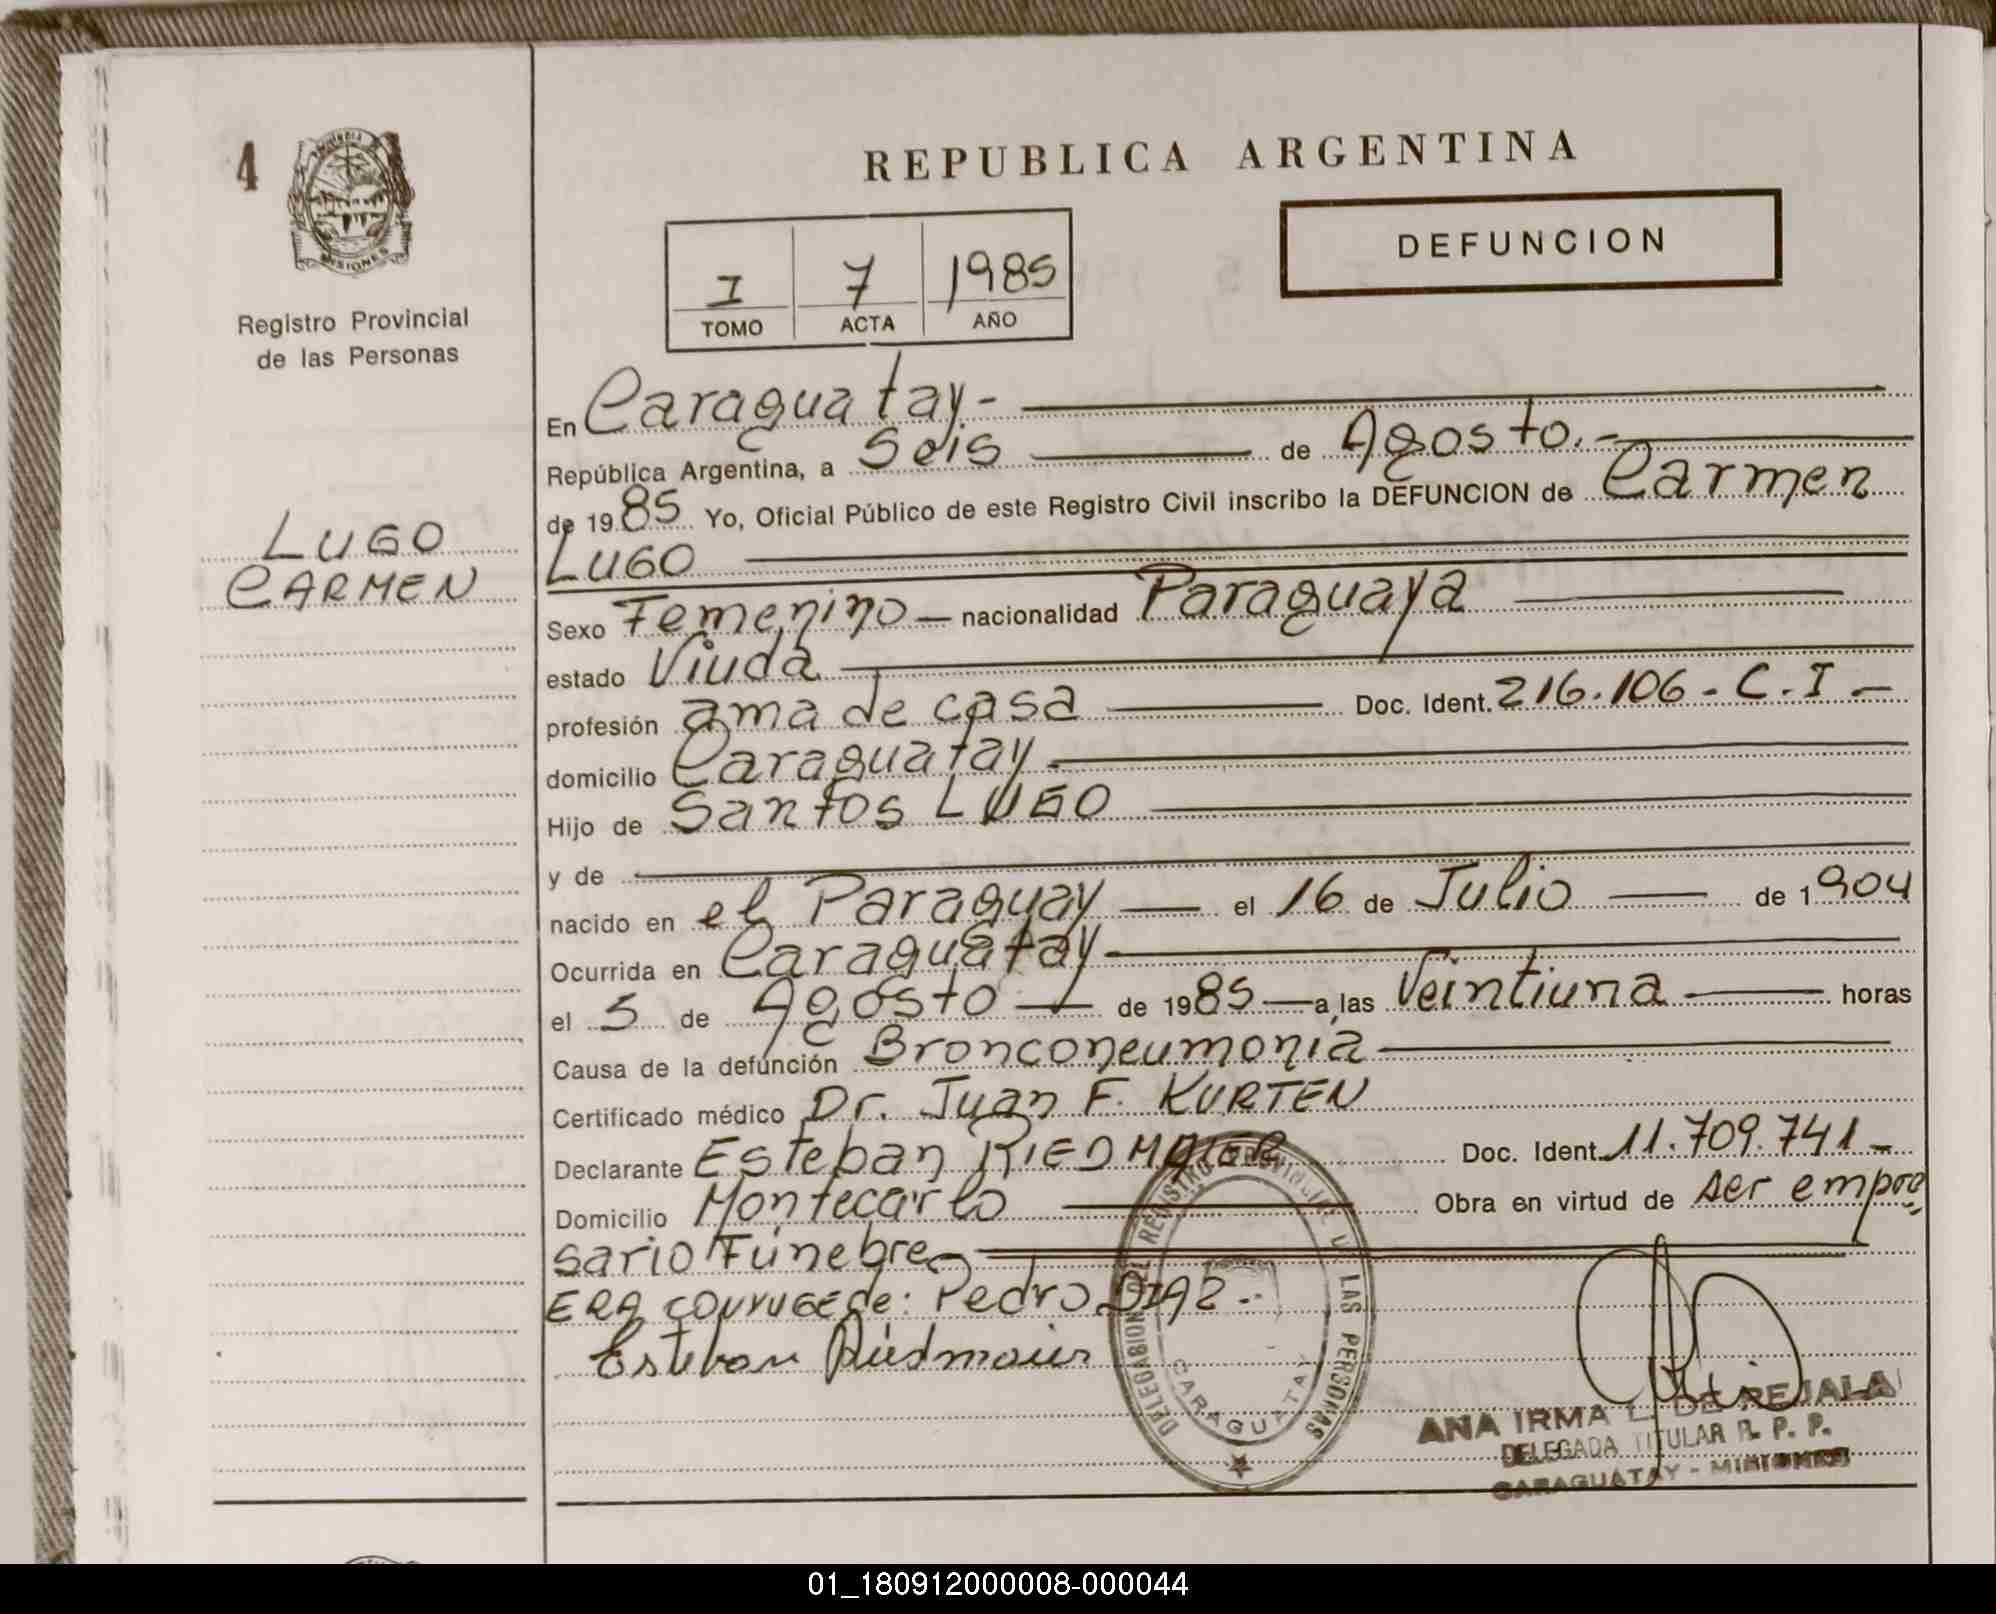 4
MISIONES
Registro Provincial
de las Personas
LUGO
CARMEN
REPUBLICA ARGENTINA
DEFUNCION
I 7 1985
TOMO ACTA AÑO
En Caraguatay-
República Argentina, a Seis de Agosto.-
de 1985 Yo, Oficial Público de este Registro Civil inscribo la DEFUNCION de Carmen
LUGO
Sexo Femenino - nacionalidad Paraguaya
estado Viuda
profesión ama de casa Doc. Ident. 216.106 - C.I -
domicilio Caraguatay
Hijo de Santos LUGO
y de
nacido en el Paraguay el 16 de Julio de 1904
Ocurrida en Caraguatay
el 5 de Agosto de 1985 a las Veintiuna horas
Causa de la defunción Bronconeumonia
Certificado médico Dr. Juan F. KURTEN
Declarante Esteban RIEDMAIER Doc. Ident. 11.709.741-
Domicilio Montecarlo Obra en virtud de ser empre
sario Fúnebre
ERA CONYUGE de: Pedro DIAZ.-
Esteban Riedmaier
DELEGACION DEL REGISTRO PROVINCIAL DE LAS PERSONAS
CARAGUATAY
ANA IRMA L. DE REJALA
DELEGADA TITULAR R. P. P.
CARAGUATAY - MISIONES
01_180912000008-000044